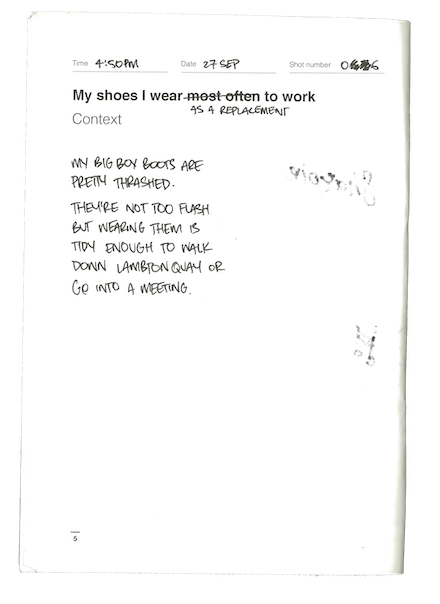 Time 4:50PM Date 27 SEP Shot number 06
My shoes I wear most often to work
AS A REPLACEMENT
Context
MY BIG BOY BOOTS ARE
PRETTY THRASHED.
THEY'RE NOT TOO FLASH
BUT WEARING THEM IS
TIDY ENOUGH TO WALK
DOWN LAMBTON QUAY OR
GO INTO A MEETING.
5